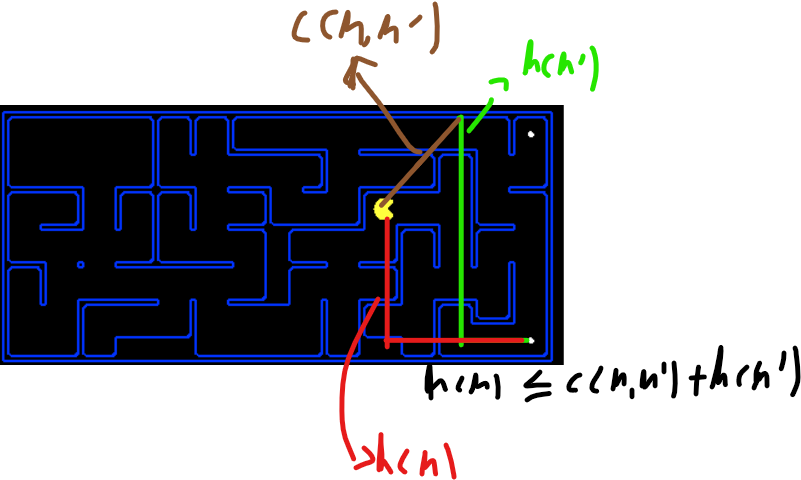 c(n,n')
h(n')
h(n) ≤ c(n,n')+h(n')
h(n)